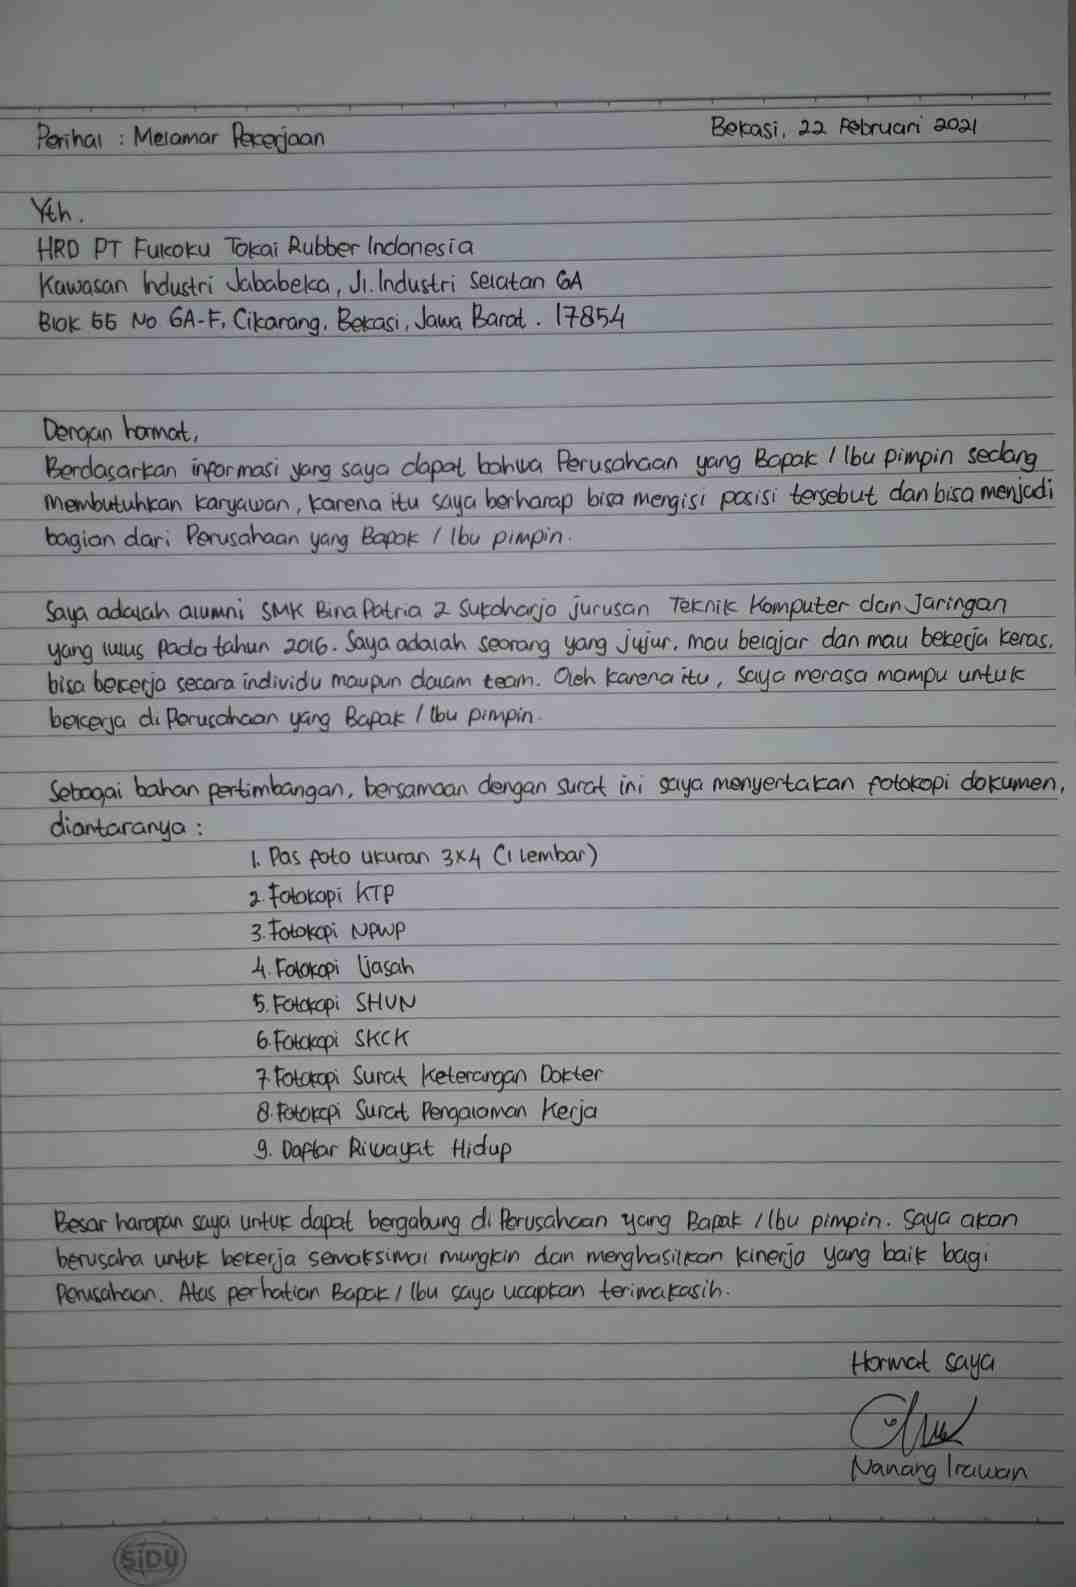 Perihal : Melamar Pekerjaan
Bekasi, 22 Februari 2021
Yth.
HRD PT Fukoku Tokai Rubber Indonesia
Kawasan Industri Jababeka, Jl. Industri Selatan 6A
Blok 55 No 6A-F, Cikarang, Bekasi, Jawa Barat. 17854
Dengan hormat,
Berdasarkan informasi yang saya dapat bahwa Perusahaan yang Bapak / Ibu pimpin sedang
membutuhkan karyawan, karena itu saya berharap bisa mengisi posisi tersebut dan bisa menjadi
bagian dari Perusahaan yang Bapak / Ibu pimpin.
Saya adalah alumni SMK Bina Patria 2 Sukoharjo jurusan Teknik Komputer dan Jaringan
yang lulus pada tahun 2016. Saya adalah seorang yang jujur, mau belajar dan mau bekerja keras,
bisa bekerja secara individu maupun dalam team. Oleh karena itu, saya merasa mampu untuk
bekerja di Perusahaan yang Bapak / Ibu pimpin.
Sebagai bahan pertimbangan, bersamaan dengan surat ini saya menyertakan fotokopi dokumen,
diantaranya :
1. Pas foto ukuran 3x4 (1 lembar)
2. Fotokopi KTP
3. Fotokopi NPWP
4. Fotokopi Ijasah
5. Fotokopi SHUN
6. Fotokopi SKCK
7. Fotokopi Surat Keterangan Dokter
8. Fotokopi Surat Pengalaman Kerja
9. Daftar Riwayat Hidup
Besar harapan saya untuk dapat bergabung di Perusahaan yang Bapak / Ibu pimpin. Saya akan
berusaha untuk bekerja semaksimal mungkin dan menghasilkan kinerja yang baik bagi
Perusahaan. Atas perhatian Bapak / Ibu saya ucapkan terimakasih.
Hormat saya
Nanang Irawan
SiDU